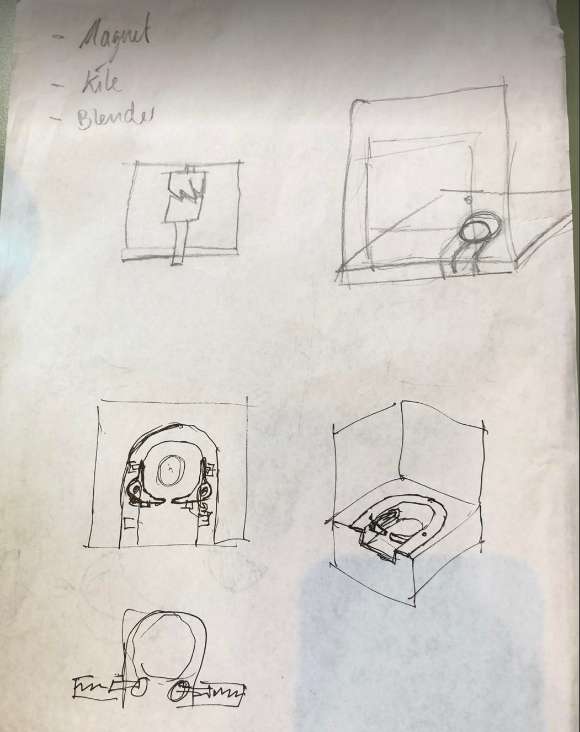 - Magnet
- Kite
- Blender